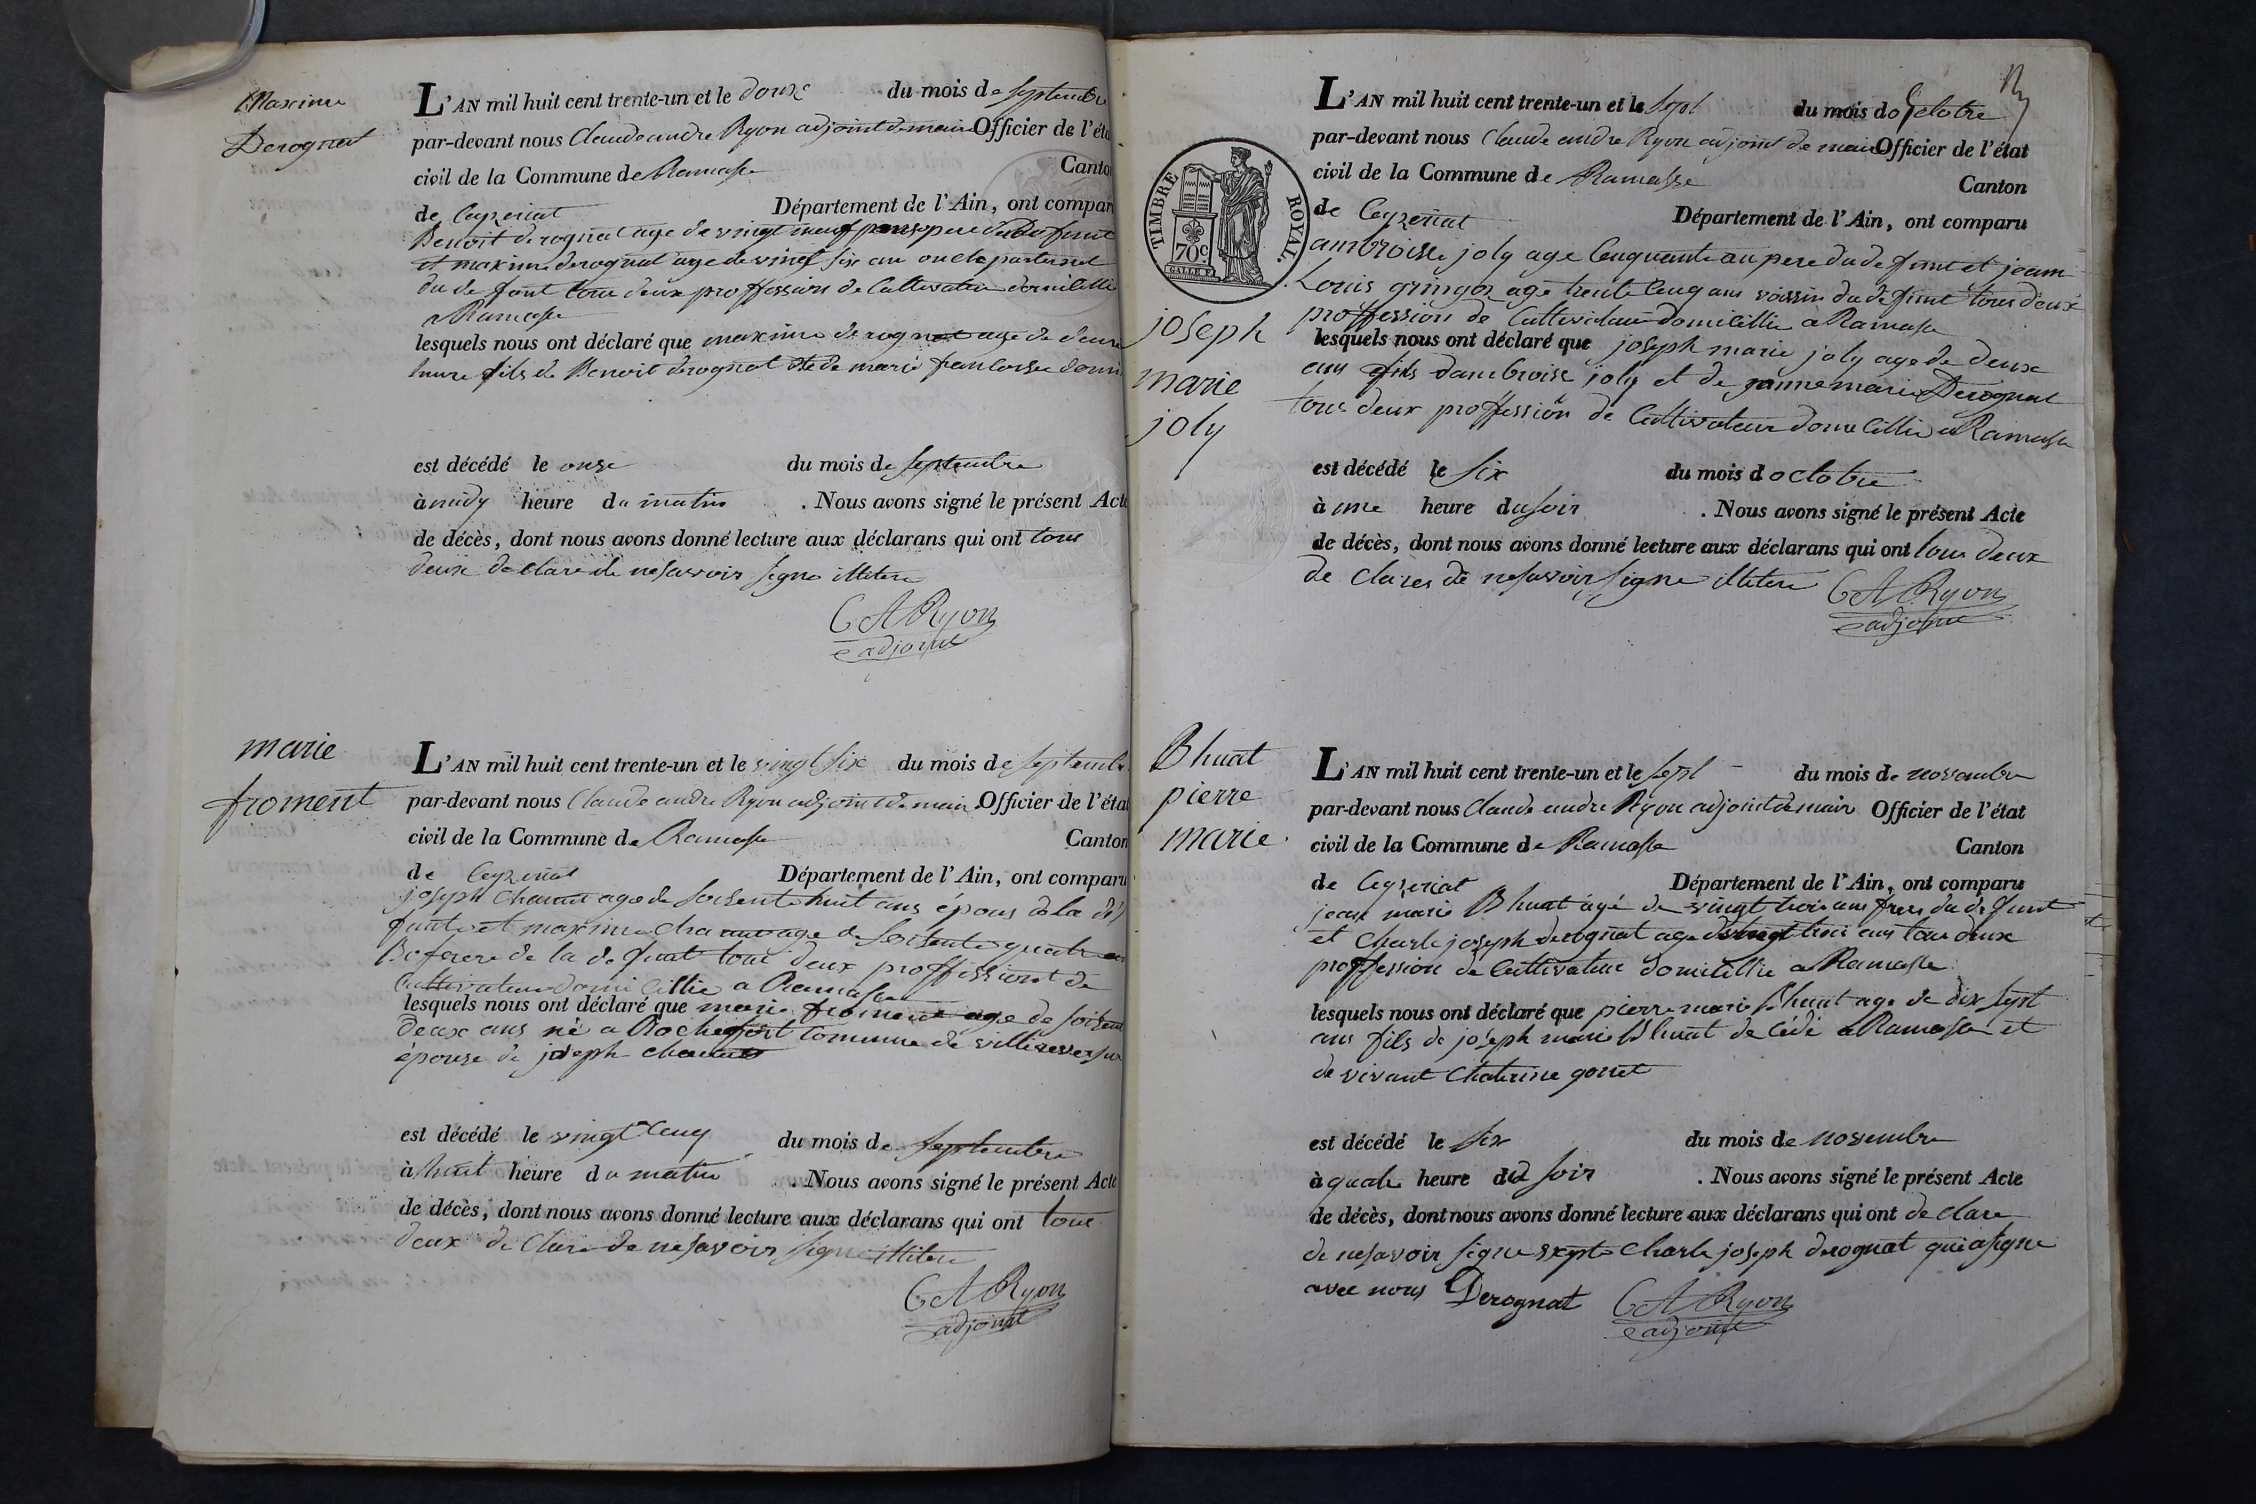 Maxime
Derognat
L'AN mil huit cent trente-un et le douze du mois de septembre
par-devant nous Claude andre Ryon adjoint de maire Officier de l'éta
civil de la Commune de Ramasse Canton
de Ceyzeriat Département de l'Ain, ont compar
Benoit derognat age de vingt neuf pere du defunt
et maxime derognat age de vingt six an oncle paternel
du defont tous deux proffession de Cultivateur domicillie
a Ramasse
lesquels nous ont déclaré que maxime derognat age de deux
heure fils de Benoit derognat et de marie francoise
est décédé le onze du mois de septembre
à midy heure du matin . Nous avons signé le présent Acte
de décès, dont nous avons donné lecture aux déclarans qui ont tous
deux declare de ne savoir signe illitere
C A Ryon
adjoint
marie
froment
L'AN mil huit cent trente-un et le vingt six du mois de septembre
par-devant nous Claude andre Ryon adjoint de maire Officier de l'état
civil de la Commune de Ramasse Canton
de Ceyzeriat Département de l'Ain, ont comparu
joseph age de soisente huit ans époux de la dé
funte et maxime age de soisente quatre
Bofrere de la defunt tous deux proffissiont de
Cultivateur domicillie a Ramasse
lesquels nous ont déclaré que marie froment age de soisent
deux ans né a Rochefort commune de villereversur
épouse de joseph
est décédé le vingt cinq du mois de septembre
à huit heure du matin . Nous avons signé le présent Acte
de décès, dont nous avons donné lecture aux déclarans qui ont tous
deux de clare de ne savoir signe illitere
C A Ryon
adjoint
TIMBRE ROYAL.
70c.
joseph
marie
joly
L'AN mil huit cent trente-un et le sept du mois d octobre
par-devant nous Claude andre Ryon adjoint de maire Officier de l'état
civil de la Commune de Ramasse Canton
de Ceyzeriat Département de l'Ain, ont comparu
ambroise joly age Cinquante an pere du defunt et jean
Louis gringoz age trente Cinq ans voissin du defunt tous deux
proffession de Cultivateur domicillie a Ramasse
lesquels nous ont déclaré que joseph marie joly age de deux
ans fils dambroise joly et de janne marie Derognat
tous deux proffession de Cultivateur domicillie a Ramasse
est décédé le six du mois d octobre
à une heure du soir . Nous avons signé le présent Acte
de décès, dont nous avons donné lecture aux déclarans qui ont tous deux
de clares de ne savoir signe illitere
C A Ryon
adjoint
Bhuat
pierre
marie
L'AN mil huit cent trente-un et le sept du mois de novembre
par-devant nous Claude andre Ryon adjoint de maire Officier de l'état
civil de la Commune de Ramasse Canton
de Ceyzeriat Département de l'Ain, ont comparu
jean marie Bhuat âgé de vingt trois ans frere du defunt
et Charle joseph derognat age de vingt trois ans tous deux
proffession de Cultivateur domicillie a Ramasse
lesquels nous ont déclaré que pierre marie Bhuat age de dix sept
ans fils de joseph marie Bhuat decédé a Ramasse et
de vivant Chaterine gonet
est décédé le six du mois de novembre
à quatre heure du soir . Nous avons signé le présent Acte
de décès, dont nous avons donné lecture aux déclarans qui ont de clare
de ne savoir signe Charle joseph derognat qui a signe
avec nous Derognat C A Ryon
adjoint